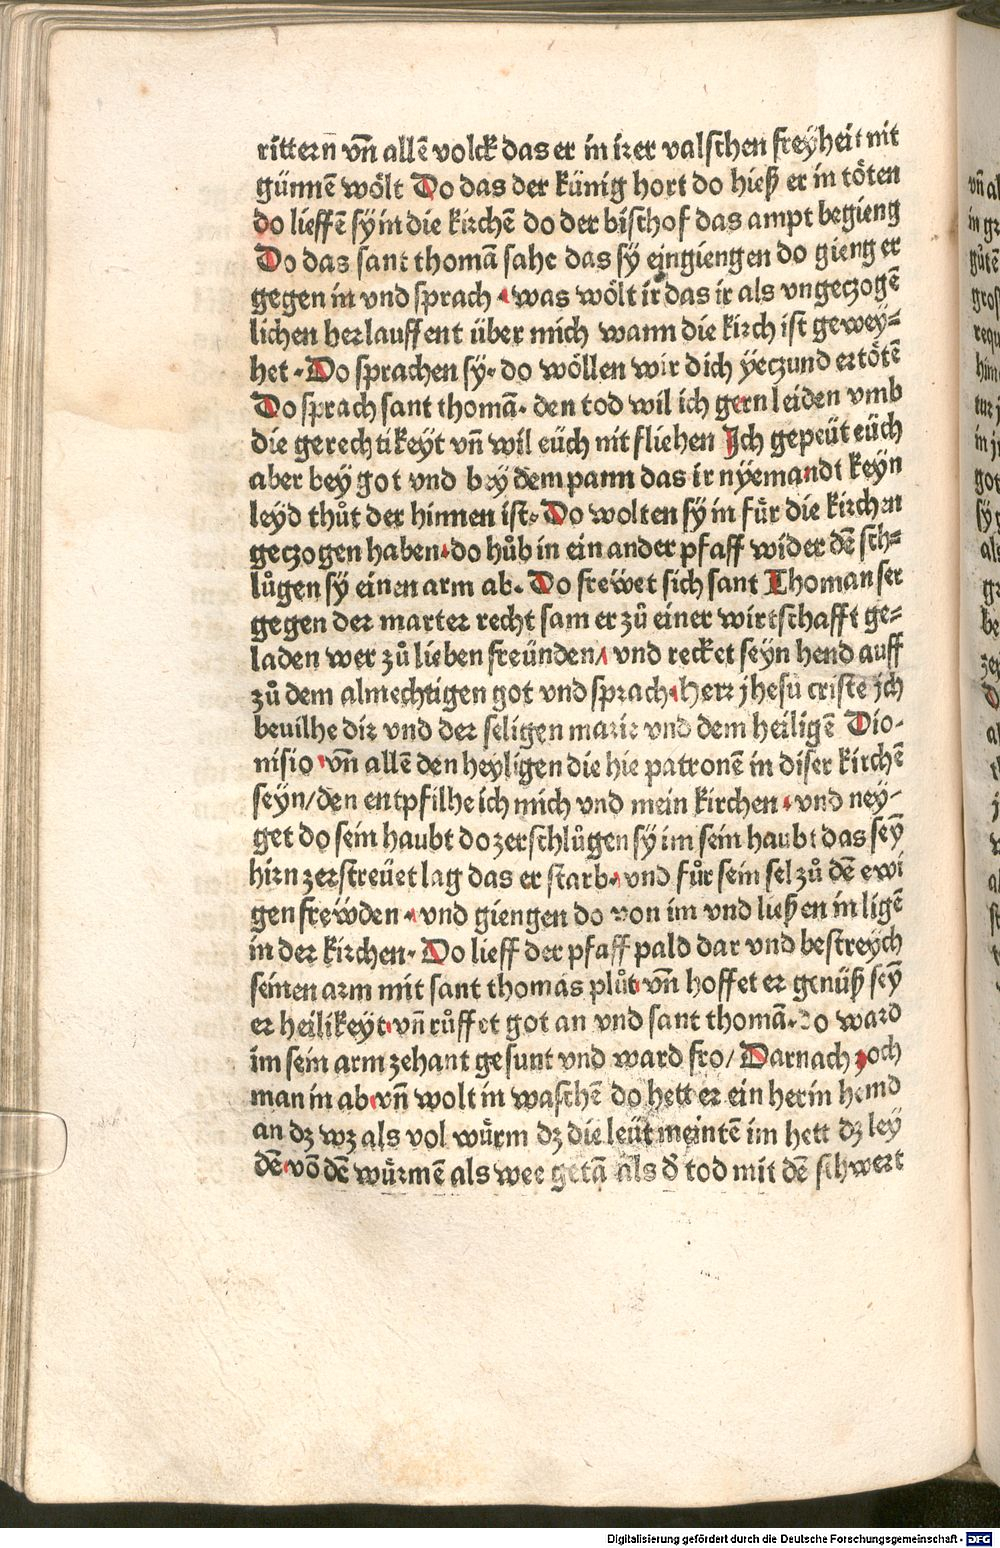 rittern vn̄ allē volck das er in irer valschen freyheit nit
günnē wölt Do das der künig hort do hieß er in töten
do lieffē sy in die kirchē do der bischof das ampt begieng
Do das sant thomā sahe das sy eingiengen do gieng er
gegen in vnd sprach · was wölt ir das ir als vngeczogē
lichen her lauffent über mich wann die kirch ist gewey⸗
het · Do sprachen sy · do wöllen wir dich yeczund ertötē
Do sprach sant thomā · den tod wil ich gern leiden vmb
die gerechtikeyt vn̄ wil eüch nit fliehen Ich gepeüt eüch
aber bey got vnd bey dem pann das ir nyemandt keyn
leyd thůt der hinnen ist · Do wolten sy in für die kirchen
geczogen haben · do hůb in ein ander pfaff wider dē sch⸗
lůgen sy einen arm ab · Do frewet sich sant Thoman ser
gegen der marter recht sam er zů einer wirtschafft ge⸗
laden wer zů lieben freünden / vnd recket seyn hend auff
zů dem almechtigen got vnd sprach · Herr jhesu criste jch
beuilhe dir vnd der seligen marie vnd dem heiligē Dio-
nisio · vn̄ allē den heyligen die hie patronē in diser kirchē
seyn / den entpfilhe ich mich vnd mein kirchen · vnd ney-
get do sein haubt do zerschlůgen sy im sein haubt das sey̅
hirn zerstreüet lag das er starb · vnd fůr sein sel zů dē ewi
gen frewden · vnd giengen do von im vnd liessen in ligē
in der kirchen · Do lieff der pfaff pald dar vnd bestreych
seinen arm mit sant thomas plůt · vn̄ hoffet er genüß sey̅
er heilikeyt · vn̄ růffet got an vnd sant thomā · Do ward
im sein arm zehant gesunt vnd ward fro / Darnach zoch
man in ab · vn̄ wolt in waschē do hett er ein herin hemd
an dz wz als vol würm dz die leüt meintē im hett dz ley
dē · vō dē würmē als wee getā als d̄ tod mit dē schwert
vn̄ al
in gr
gros
requ
got
Digitalisierung gefördert durch die Deutsche Forschungsgemeinschaft - DFG